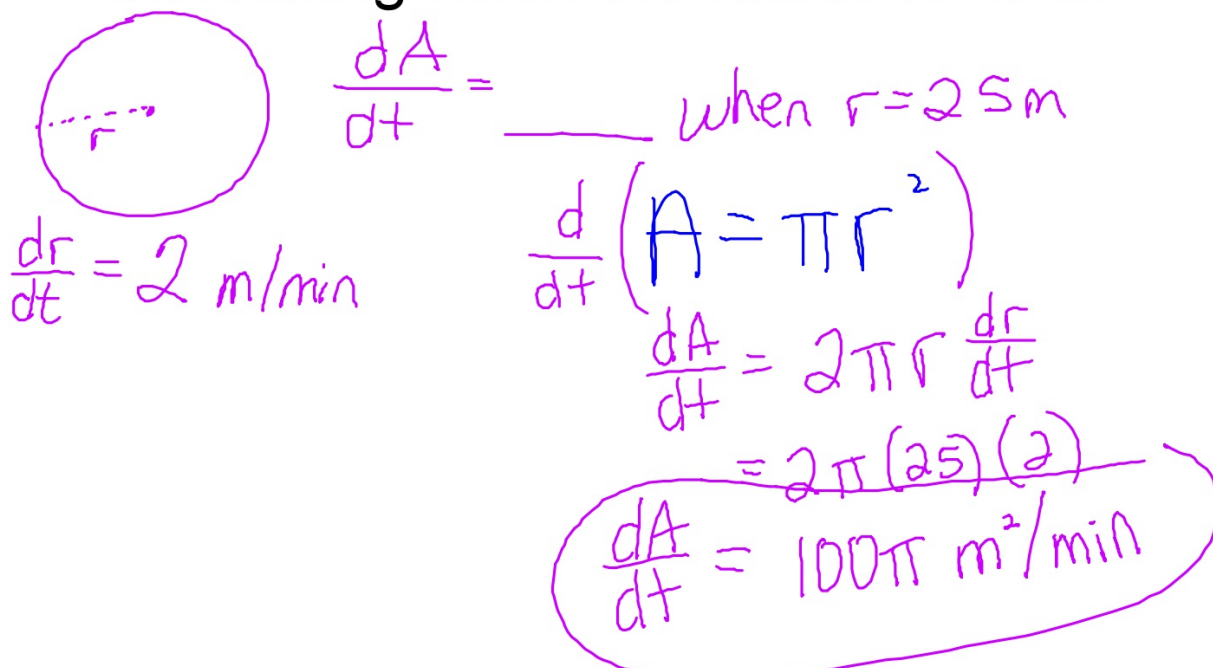 dA/dt = ____ when r = 25m
r
dr/dt = 2 m/min
d/dt (A = πr²)
dA/dt = 2πr dr/dt
= 2π(25)(2)
dA/dt = 100π m²/min